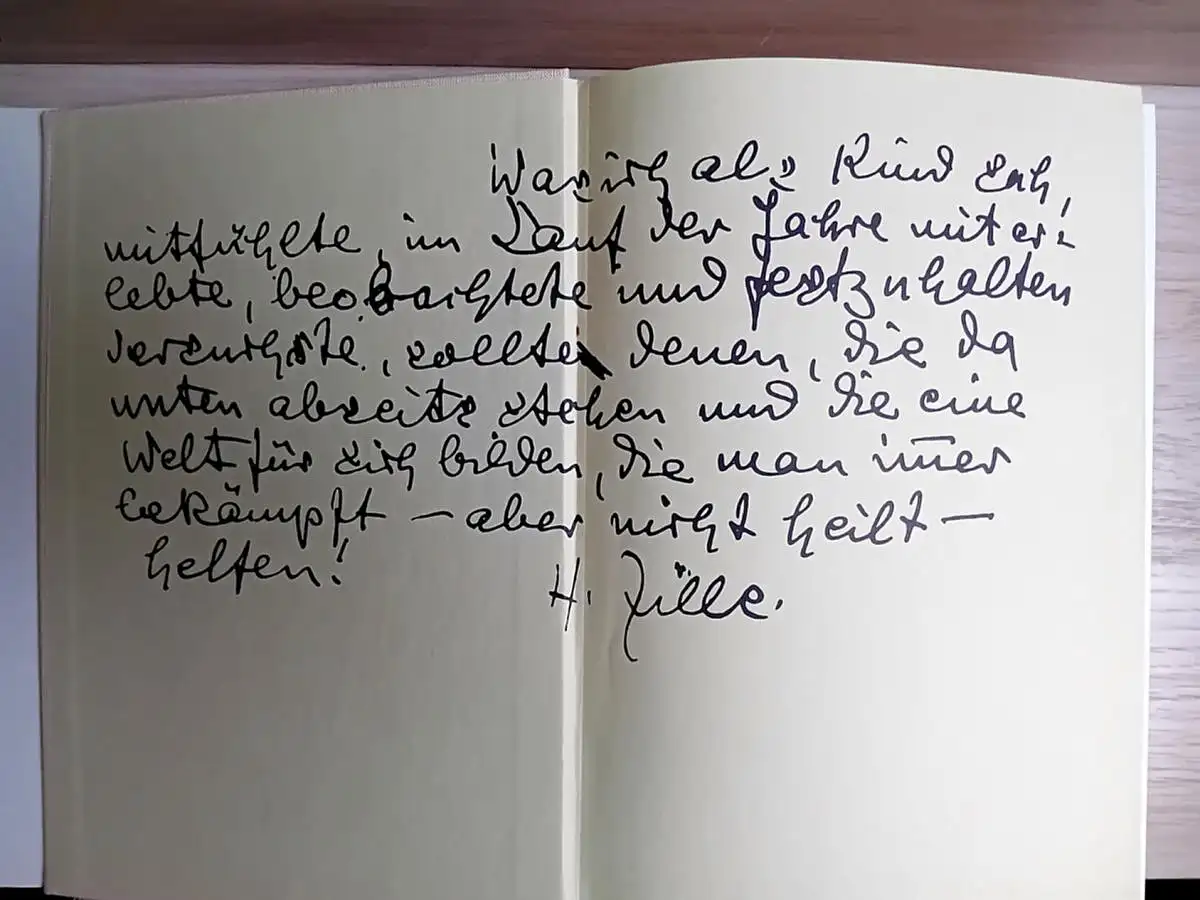 Was ich als Kind sah,
mitfühlte, im Lauf der Jahre miter-
lebte, beobachtete und festzuhalten
versuchte, sollte denen, die da
unten abseits stehen und die eine
Welt für sich bilden, die man im̅er
bekämpft — aber nicht heilt —
helfen!
H. Zille.